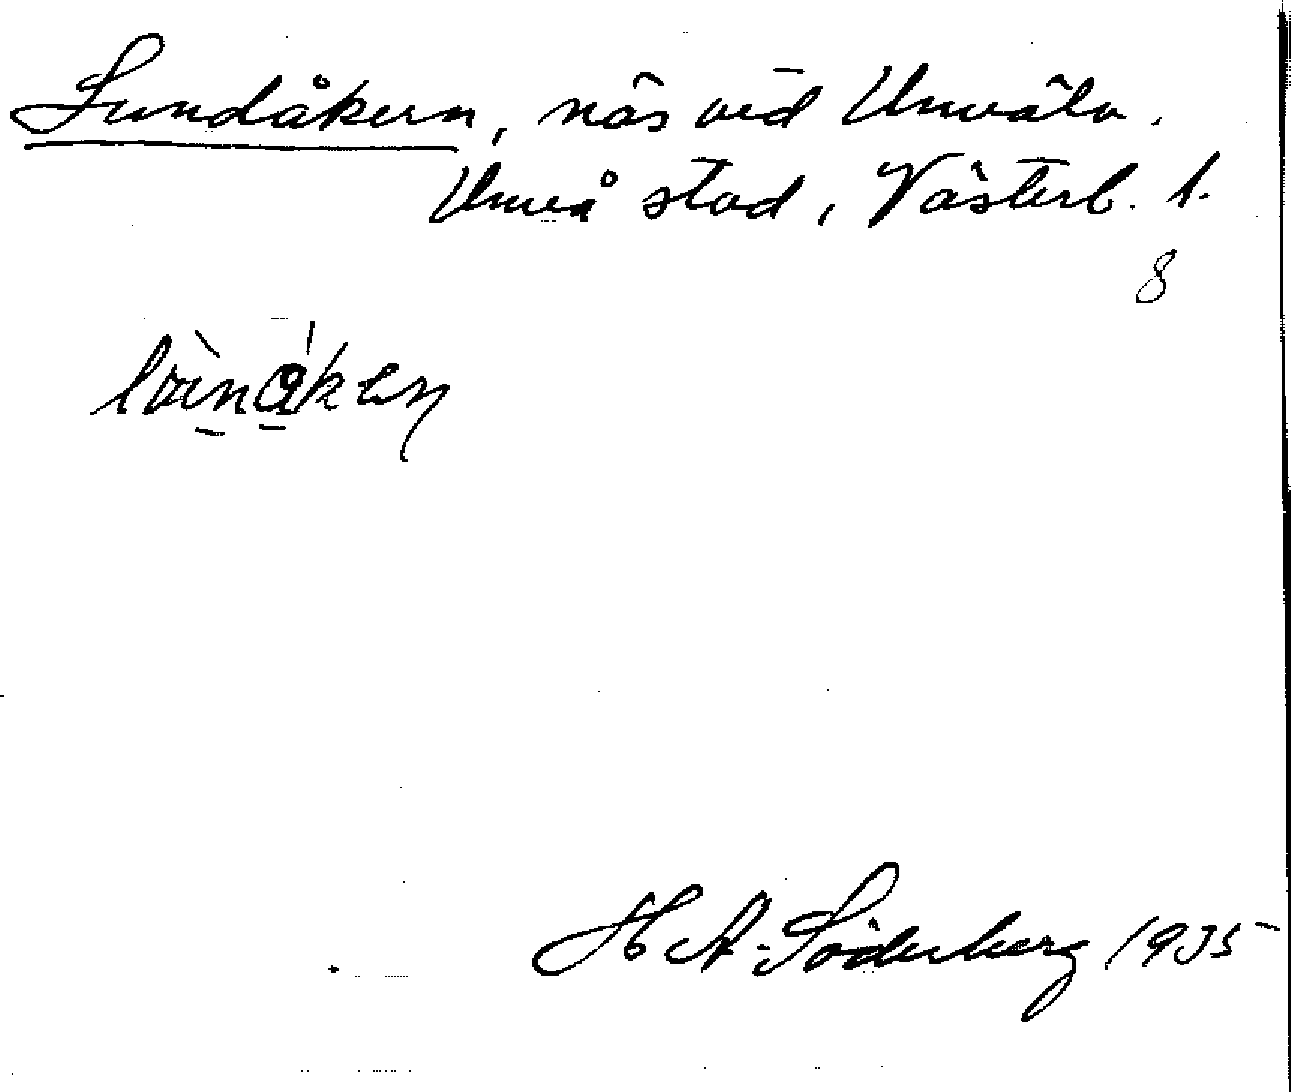 Sundåkern, näs vid Umeälv.
Umeå stad, Västerb. l.
8
H A. Söderberg 1935